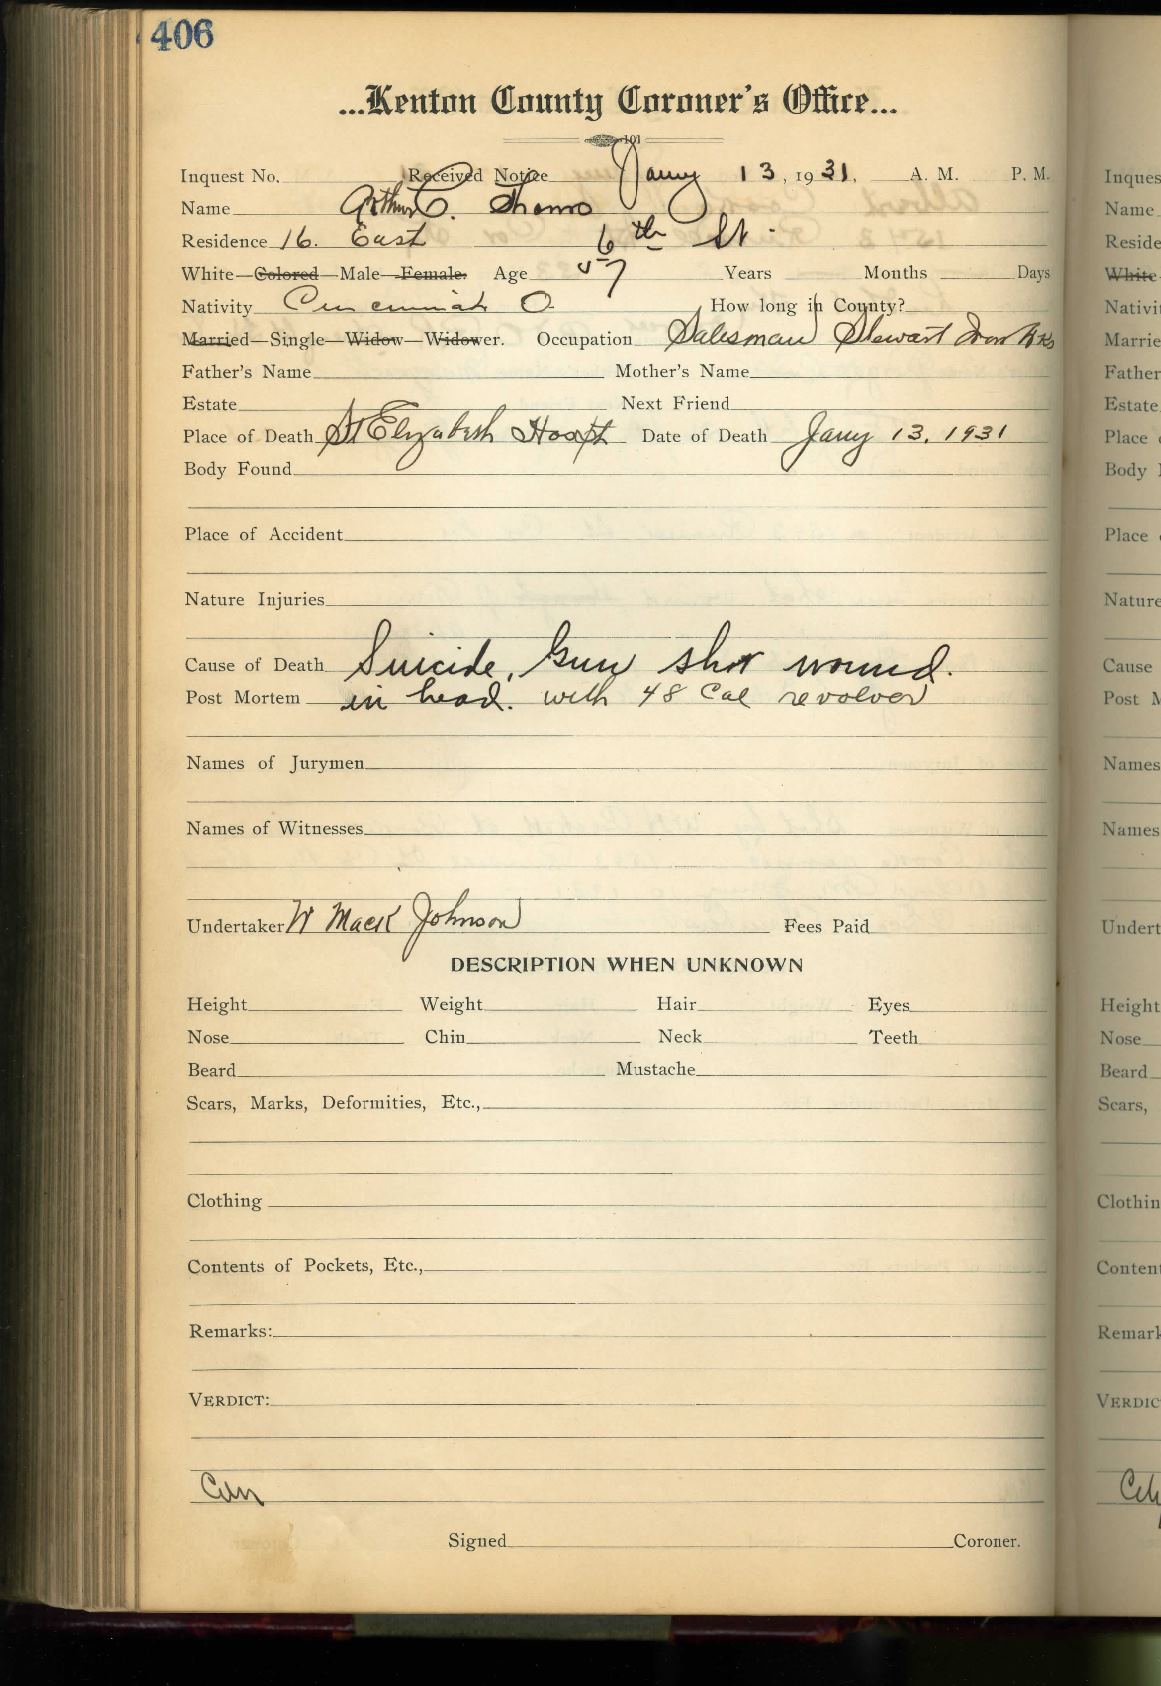 406
...Kenton County Coroner's Office...
101
Inquest No. Received Notice Jany 13, 1931, A. M. P. M.
Name Arthur C. Thoms
Residence 16. East 6th St.
White—Colored—Male—Female. Age 57 Years Months Days
Nativity Cincinnati O How long in County?
Married—Single—Widow—Widower. Occupation Salesman Stewart Iron Wks
Father's Name Mother's Name
Estate Next Friend
Place of Death St Elizabeth Hospt Date of Death Jany 13, 1931
Body Found
Place of Accident
Nature Injuries
Cause of Death Suicide, Gun shot wound.
Post Mortem in head. with 48 Cal revolver
Names of Jurymen
Names of Witnesses
Undertaker W Mack Johnson Fees Paid
DESCRIPTION WHEN UNKNOWN
Height Weight Hair Eyes
Nose Chin Neck Teeth
Beard Mustache
Scars, Marks, Deformities, Etc.,
Clothing
Contents of Pockets, Etc.,
Remarks:
VERDICT:
Signed Coroner.
Inques
Name
Reside
White
Nativi
Marrie
Father
Estate
Place
Body
Place
Nature
Cause
Post M
Names
Names
Undert
Height
Nose
Beard
Scars,
Clothin
Content
Remark
VERDIC